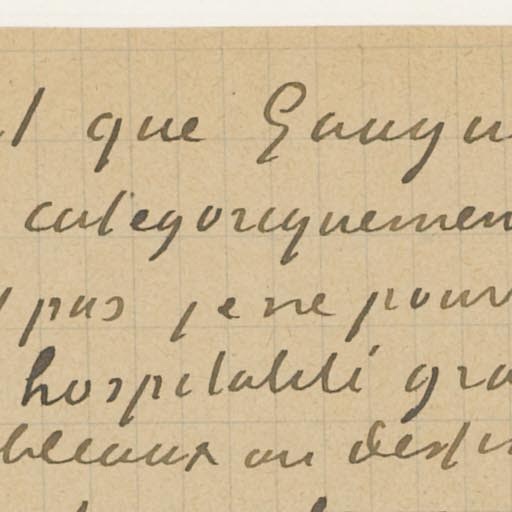 que Gaugu
categoriquemen
pas je ne pour
hospitalité gra
bleaux ou dess